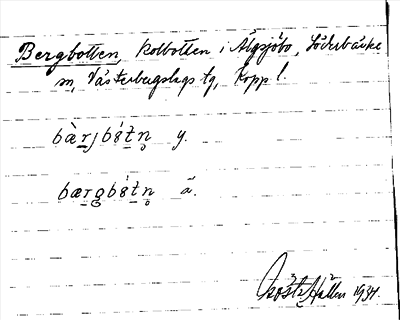 Bergbotten, Kolbotten i Älgsjöbo, Söderbärke
sn, Västerbergslags tg, Kopp l.
bàrjbót̠n̥ y.
bærgbót̠n̥ ä.
Gösta Hallen 1934.